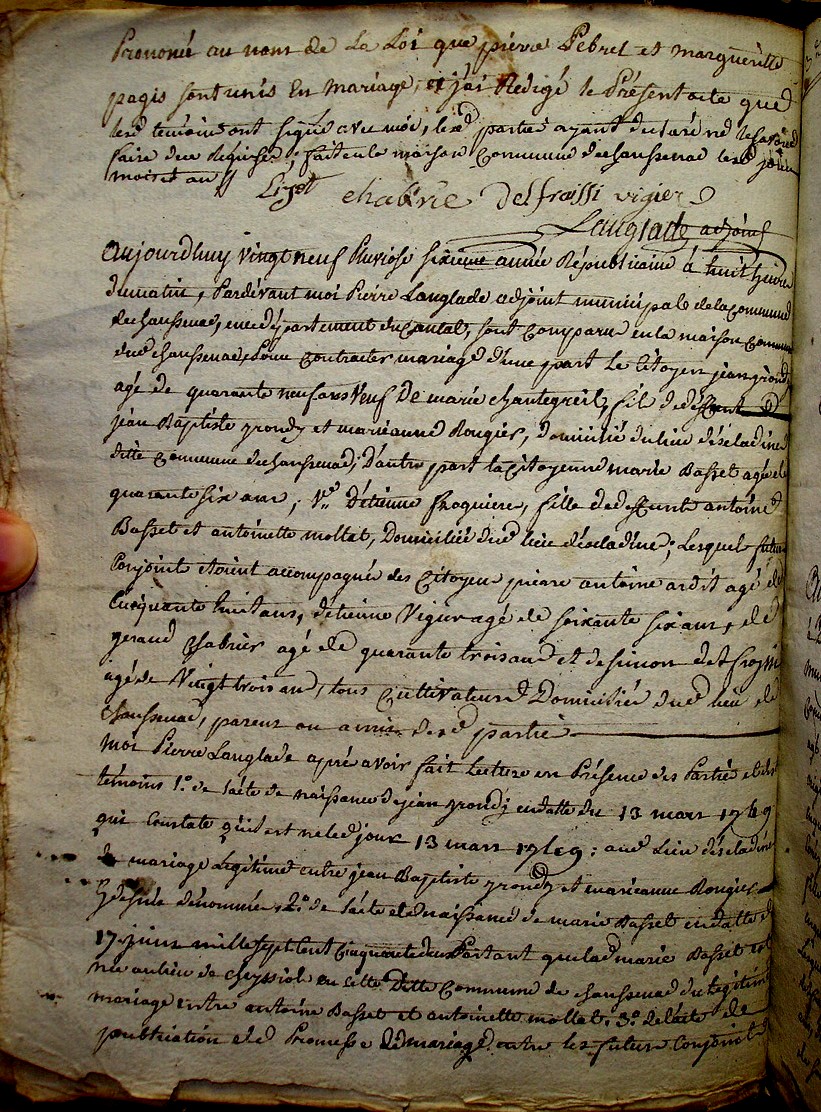 Prononcé au nom de La Loi que pierre Pebrel et margueritte
pagis sont unis En mariage, et j'ai Redigé le Présent acte que
lesd temoins ont signé avec moi, lesd partie ayant declaré ne le savoir
faire de ce Requises; fait en la maison Commune de chaussenac lesd jour
mois et an
Lizet chabrie delfraissi vigier
Langlade adjoint
Aujourdhuy vingt neuf Pluviose sixieme année Républicaine à huit heure
du matin, Pardevant moi Pierre Langlade adjoint municipale de la Commune
de chaussenac, departement du Cantal, sont Comparu en la maison Commune
dud chaussenac, Pour Contracter mariage d'une part le Citoyen jean grondz
agé de quarante neuf ans Veuf De marie chantegreil, fil de deffunt
jean Baptiste grondz et marieanne Rougier, domicilié du lieu d'éscladine
ditte Commune de chaussenac; D'autre part la Citoyenne marie Basset agé de
quarante six ans; Ve D'étienne froquiere, fille de deffunt antoine
Basset et antoinette mollat, Domiciliée dud lieu déscladine; Lesquels futur
Conjoint etoient accompagnée des Citoyen pierre antoine ardit agé de
Cinquante huit ans, détienne Vigier agé de soixante six ans, de
geraud Chabrier agé de quarante trois ans et de simon delfroissi
agé de Vingt trois ans, tous Cultivateurs Domicilié dud lieu de
Chaussenac, parens ou amis desd partie
moi Pierre Langlade apré avoir fait Lecture en Présence des Partie et des
témoins 1.° de l'acte de naissance de jean grondz en datte du 13 mars 1749
qui Constate qu'il est né led jour 13 mars 1749: aud Lieu déscladine
de mariage Légitime entre jean Baptiste grondz et marieanne Rougier
dénommée. 2.° de l'acte de naissance de marie Basset en datte du
17. juin mille sept Cent Cinquante deux Portant que lad marie Basset est
née au lieu de cheyssiol en cette Ditte Commune de chaussenac du légitime
mariage entre antoine Basset et antoinette mollat. 3.° de l'acte de
publication de Promesse de mariage entre les futurs Conjoint